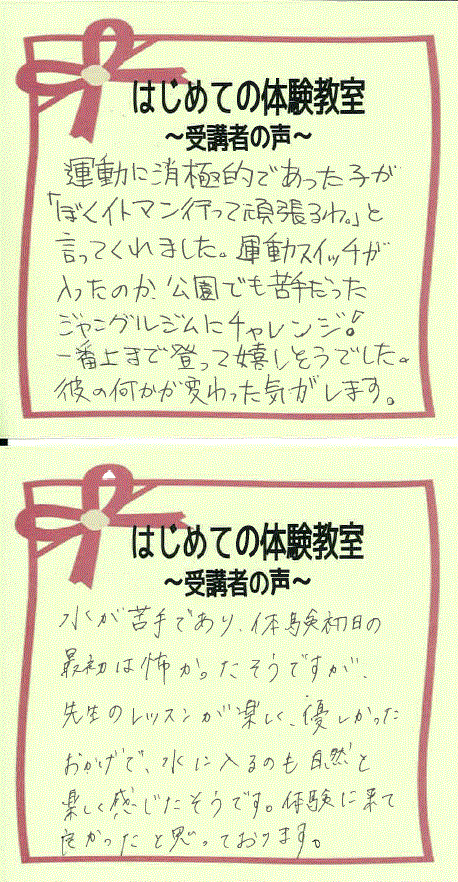 はじめての体験教室
～受講者の声～
運動に消極的であった子が
「ぼくイトマン行って頑張るわ。」と
言ってくれました。運動スイッチが
入ったのか、公園でも苦手だった
ジャングルジムにチャレンジ!
一番上まで登って嬉しそうでした。
彼の何かが変わった気がします。
はじめての体験教室
～受講者の声～
水が苦手であり、体験初日の
最初は怖かったそうですが、
先生のレッスンが楽しく、優しかった
おかげで、水に入るのも自然と
楽しく感じたそうです。体験に来て
良かったと思っております。